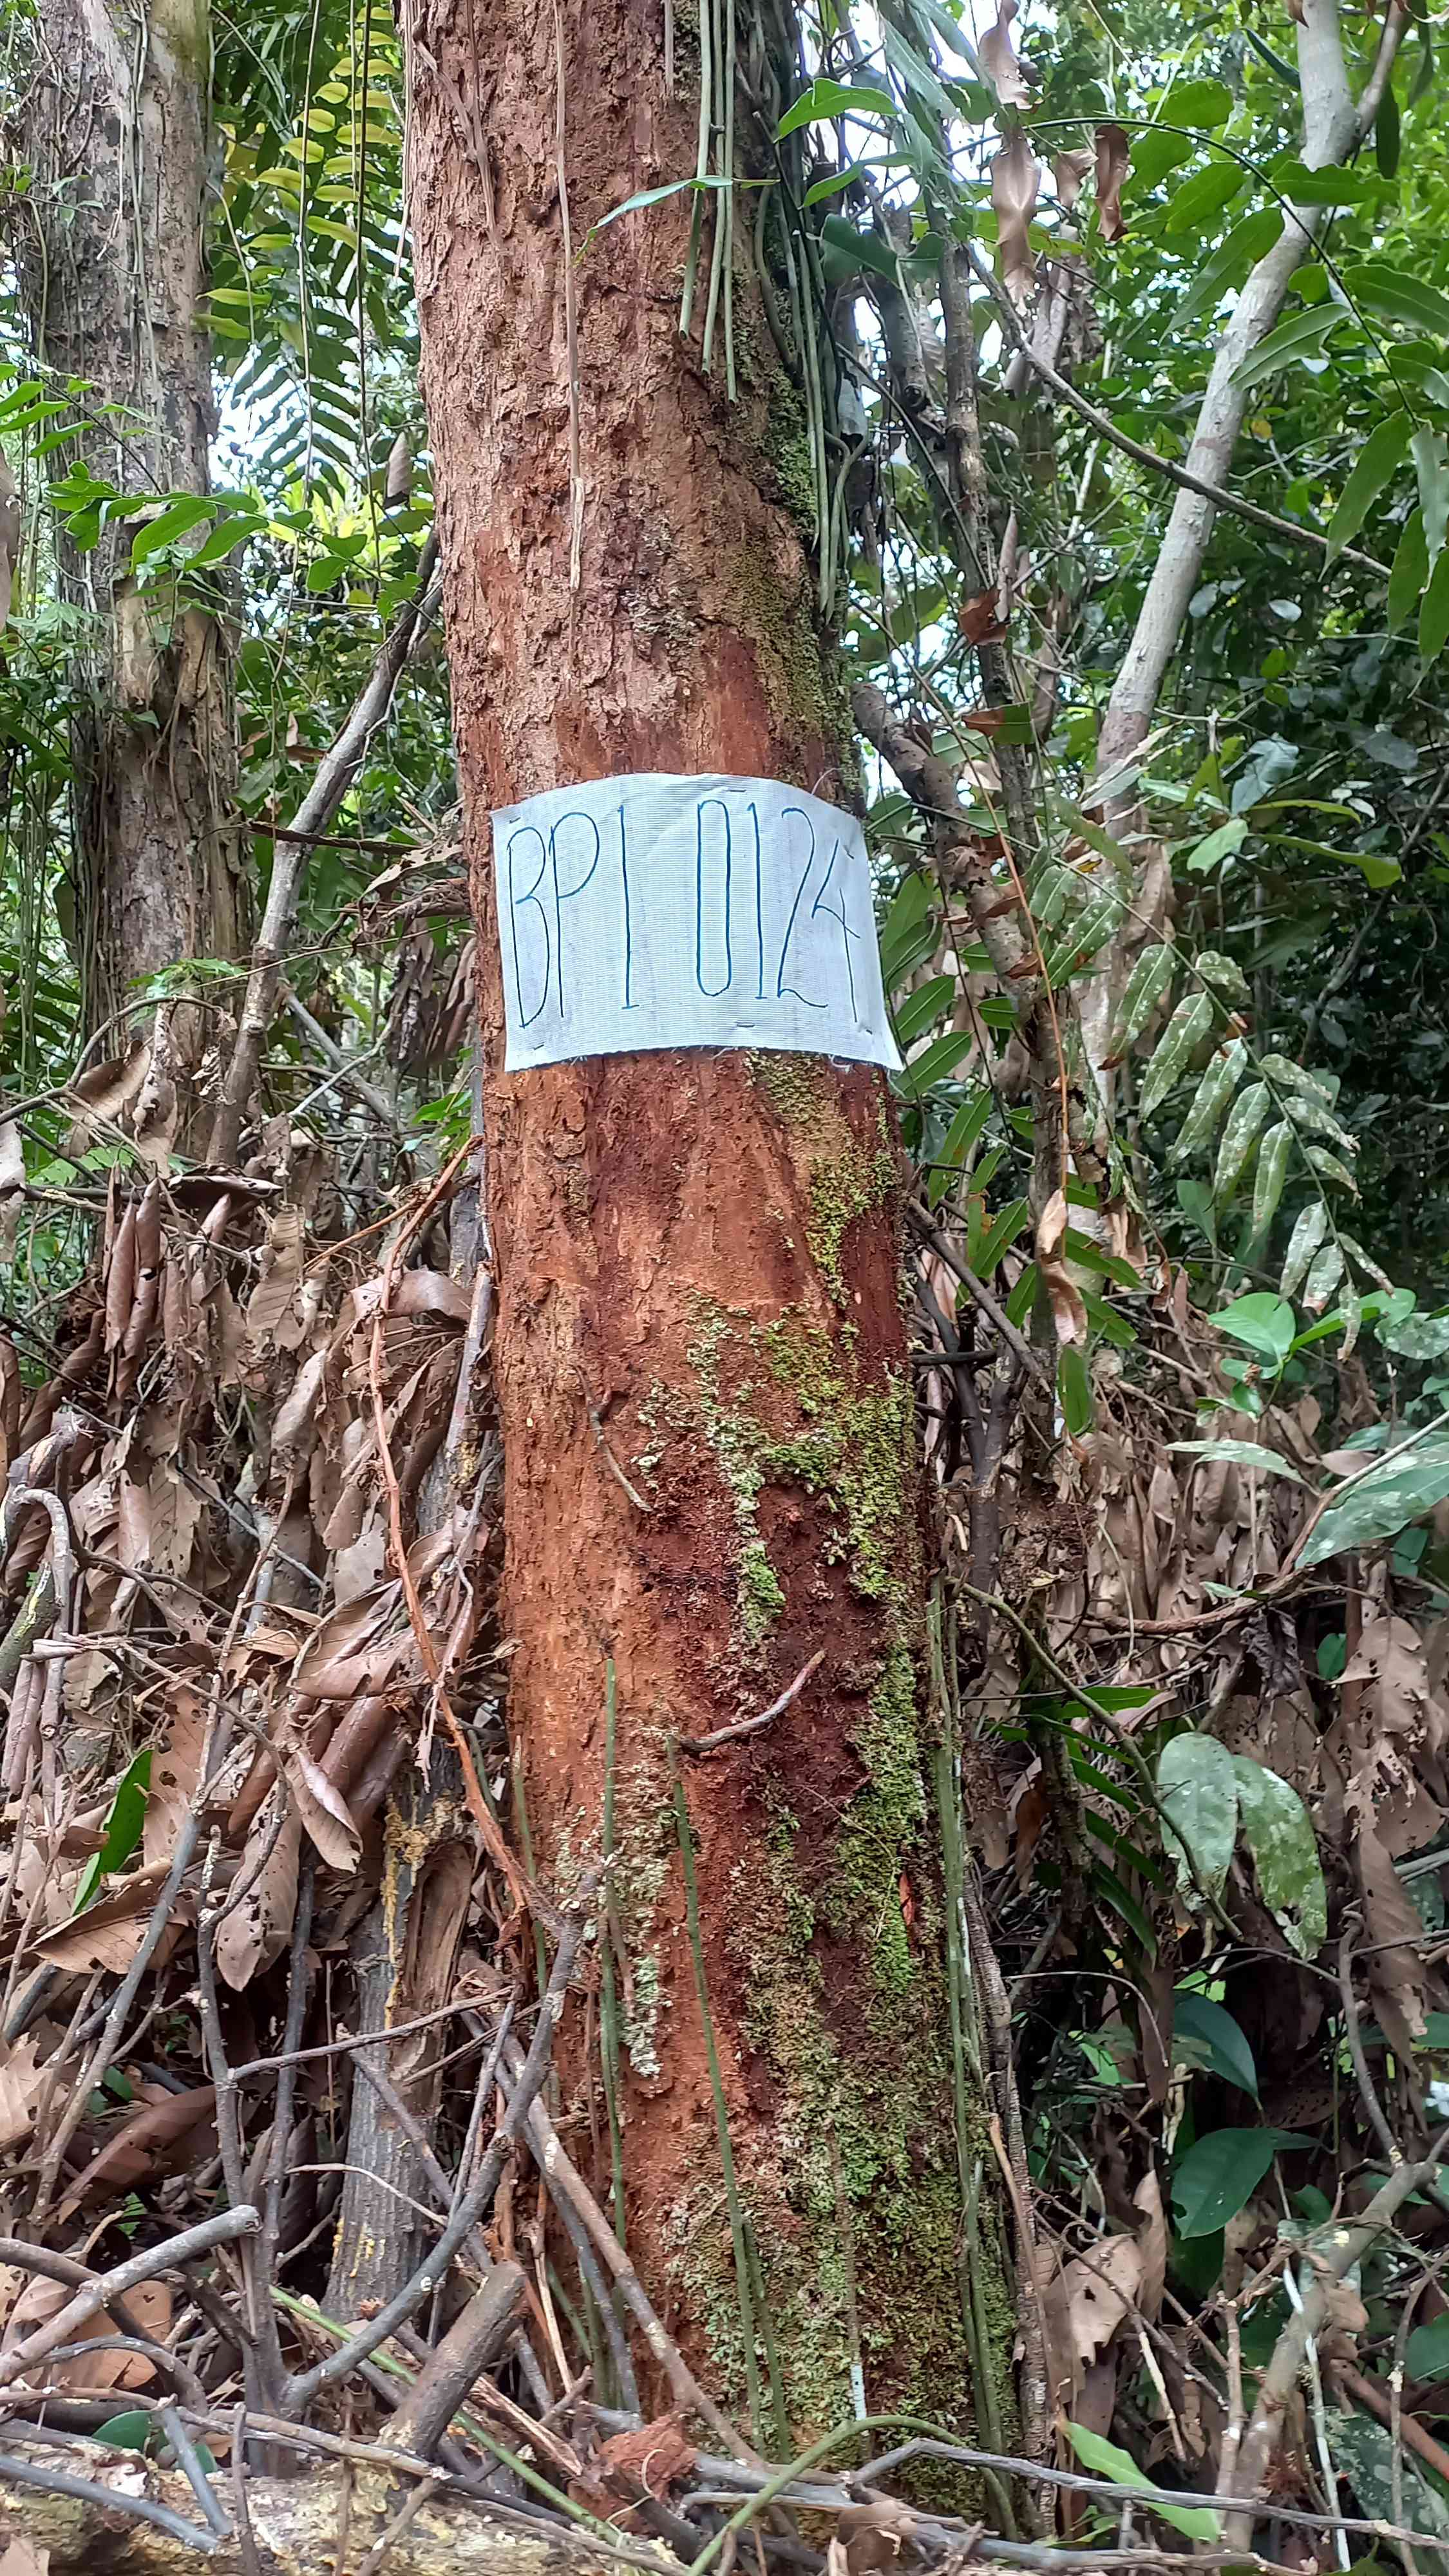 BP1 0124